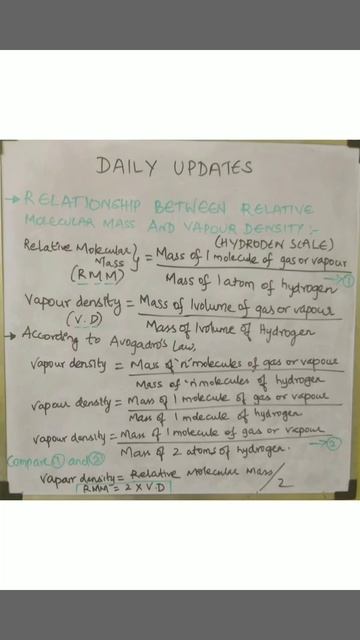 DAILY UPDATES
→ RELATIONSHIP BETWEEN RELATIVE
MOLECULAR MASS AND VAPOUR DENSITY :-
(HYDRODEN SCALE)
Relative Molecular Mass (RMM) } = Mass of 1 molecule of gas or vapour
Mass of 1 atom of hydrogen → ①
Vapour density (V.D) = Mass of 1 volume of gas or vapour
Mass of 1 volume of Hydrogen
→ According to Avogadro's Law.
vapour density = Mass of 'n' molecules of gas or vapour
Mass of 'n' molecules of hydrogen
vapour density = Mass of 1 molecule of gas or vapour
Mass of 1 molecule of hydrogen
vapour density = Mass of 1 molecule of gas or vapour
Mass of 2 atoms of hydrogen. → ②
Compare ① and ②
vapour density = Relative Molecular Mass / 2
RMM = 2 X V.D